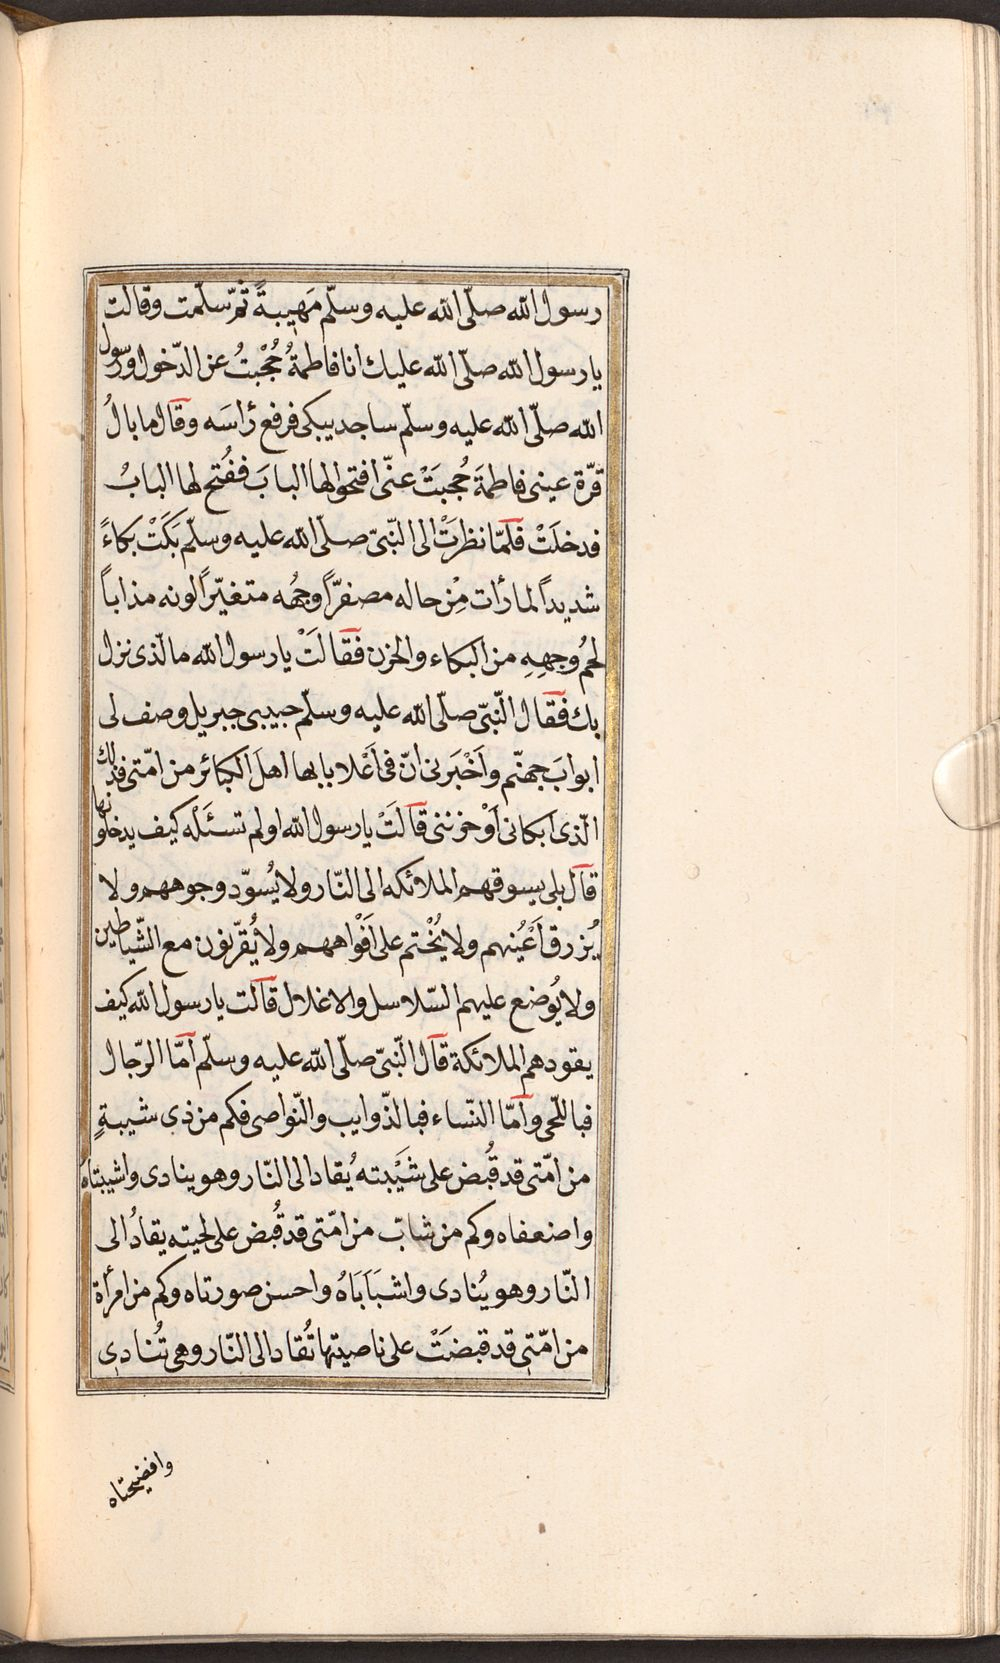 رسول الله صلّى الله عليه وسلّم مَهِيبةً ثمّ سلّمت وقالت
يا رسول الله صلّى الله عليك انا فاطمةُ حُجْبتُ عن الدّخول ورسول
الله صلّى الله عليه وسلّم ساجد يبكى فرفع رٔاسَه وقال ما بالُ
قرّة عينى فاطمةَ حُجبَتْ عنّى افتحوا لها البابَ ففُتح لها البابُ
فدخلَتْ فلمّا نظرَتْ الى النّبىّ صلّى الله عليه وسلّم بَكَتْ بكاءً
شديداً لما رأت مِنْ حاله مصفرّاً وجهُه متغيّراً لونه مذاباً
لحمُ وجهِهِ من البكاء والحزن فقالَتْ يا رسول الله ما لّذى نزل
بك فقال النّبىّ صلّى الله عليه وسلّم حبيبى جبريل وصف لى
ابوابَ جهنّم واَخْبَرنى انّ فى اَعْلا بابها اهلَ الكبائر من امّتى فذلك
الّذى ابكانى اَوْ حزننى قالَتْ يا رسول الله اولم تسـٔـَلْه كيف يدخلونها
قال بلى يسوقهم الملائكه الى النّار ولا يُسوّد وجوههم ولا
يُزرق اَعْيُنهم ولا يُخْتم على اَفْواههم ولا يُقرّنون مع الشّياطين
ولا يُوضع عليهم السّلاسل والاغلال قالت يا رسول الله كيف
يقودهم الملائكة قال النّبىّ صلّى الله عليه وسلّم امّا الرّجال
فبا للّحى وامّا النّساء فبا لذّوايب والنّواصى فكم من ذى شيبةٍ
من امّتى قد قُبض على شَيْبته يُقاد الى النّار وهو ينادى واشيبتاهُ
واضعفاه وكم من شابّ من امّتى قد قُبض على لحيته يقادُ الى
النّار وهو يُنادى واشبَابَاهُ واحسن صورتاه وكم من امرأة
من امّتِى قد قبضَتْ على ناصيتها تُقاد الى النّار وهى تُنادِى
وافضيحتاه